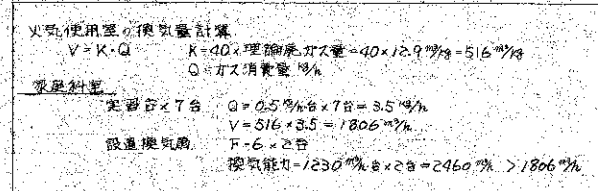 火気使用室の換気量計算
V=K・Q K=40×理論廃ガス量=40×12.9 m³/kg=516 m³/kg
Q=ガス消費量 kg/h
家庭科室
実習台×7台 Q=0.5 kg/h台×7台=3.5 kg/h
V=516×3.5=1806 m³/h
設置換気扇 F-6×2台
換気能力=1230 m³/h台×2台=2460 m³/h >1806 m³/h